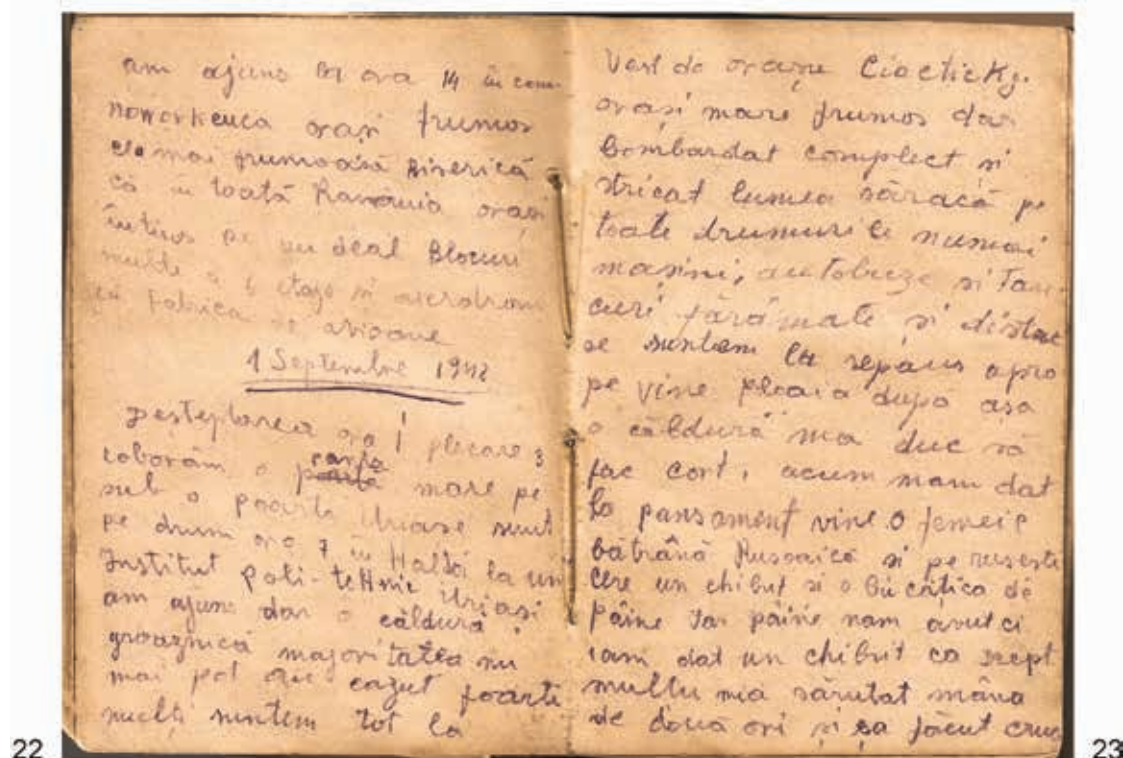 am ajuns la ora 14 în com.
noworkeuca orași frumos
cea mai frumoasă Biserică
că în toată România orași
întins pe un deal Blocuri
multe a 6 etaje și aerodrom
că fabrica de avioane
1 Septembre 1942
Desteptarea ora 1 plecare 3
coborâm o panta mare pe
sub o poartă Uriase sunt
pe drum ora 7 în Haltăi la un
Institut poli-teHnic Uriași
am ajuns dar o căldură
groaznică majoritatea nu
mai pot au cazut foarte
mulți suntem tot la
22
Vest de orașu
orași mare frumos dar
Bombardat complect si
stricat lumea săracă pe
toate drumurile numai
masini, autobuze si tan-
curi fărâmate și distru
se suntem la repaus apro
pe vine ploaia după așa
o căldură ma duc să
fac cort, acum mam dat
la pansament vine o femeie
bătrână Rusoaică si pe ruseste
cere un chibut si o bucatica de
pâine Iar pâine nam avut ci
iam dat un chibrit ca
multu mia sărutat mâna
de două ori și sa făcut cruc
23